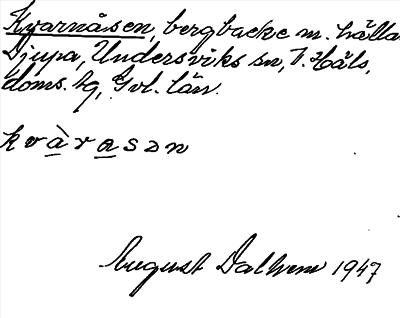 Kvarnåsen, bergbacke m. hälla
Djupa, Undersviks sn, V. Häls.
doms. sg, Gvl. län.
kvàrasən
August Dalhem 1947